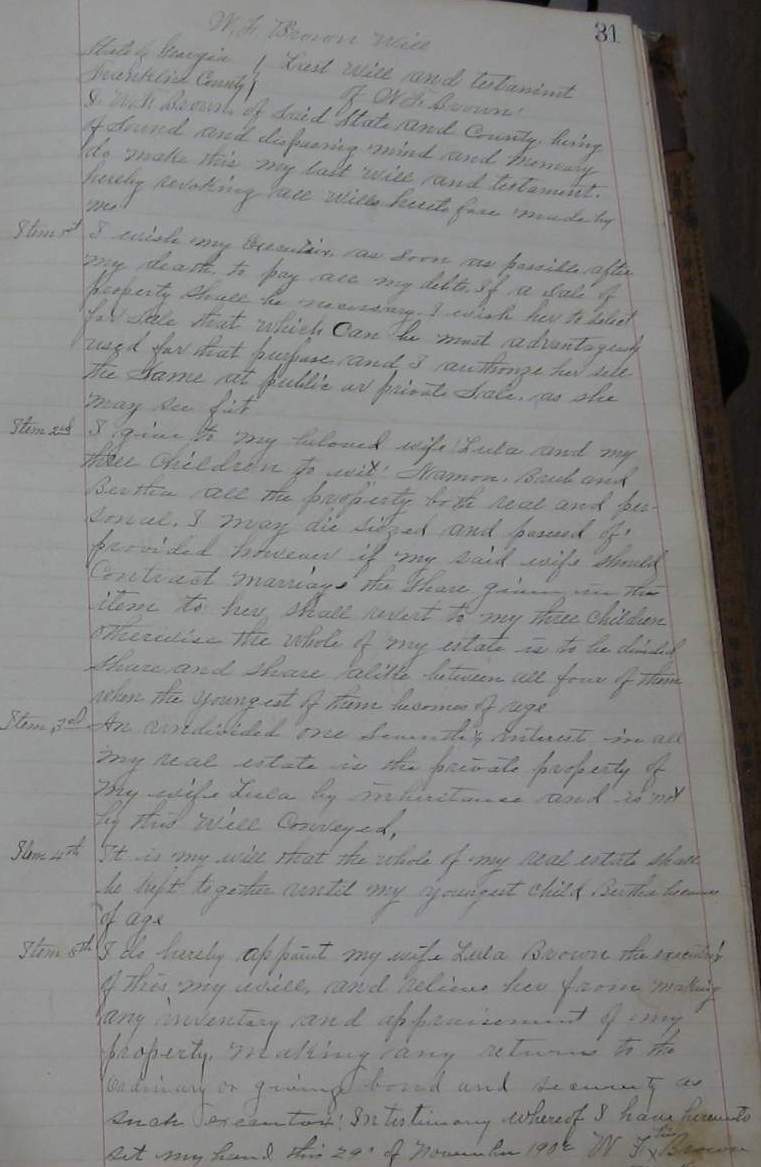 31
W. F. Brown Will
State of Georgia } Last Will and testament
Franklin County } of W. F. Brown.
I W. F. Brown, of said State and County, being
of sound and disposing mind and memory
do make this my last will and testament.
hereby revoking all wills heretofore made by
me
Item 1st I wish my Executrix, as soon as possible after
my death, to pay all my debts. If a sale of
property shall be necessary, I wish her to select
for sale that which Can be most advantageously
used for that purpose and I authorize her sell
the same at public or private Sale, as she
may see fit
Item 2nd I give to my beloved wife Lula and my
three children to wit: Namon, Brub and
Bertha all the property both real and per-
sonal, I may die siezed and possed of.
provided however if my said wife should
Contract marriage the share given in this
item to her shall revert to my three children
otherwise the whole of my estate is to be divided
share and share alike between all four of them
when the youngest of them becomes of age
Item 3rd An undivided one Seventh interest in all
my real estate is the private property of
my wife Lula by inheritance and is not
by this Will Conveyed,
Item 4th It is my will that the whole of my real estate shall
be kept together until my youngest child Bertha becomes
of age
Item 5th I do hereby appoint my wife Lula Brown the executrix
of this my will, and relieve her from making
any inventory and appraisement of my
property, making any returns to the
Ordinary or giving bond and security as
such executrix. In testimony whereof I have hereunto
set my hand this 29" of November 190 W F his x Brown